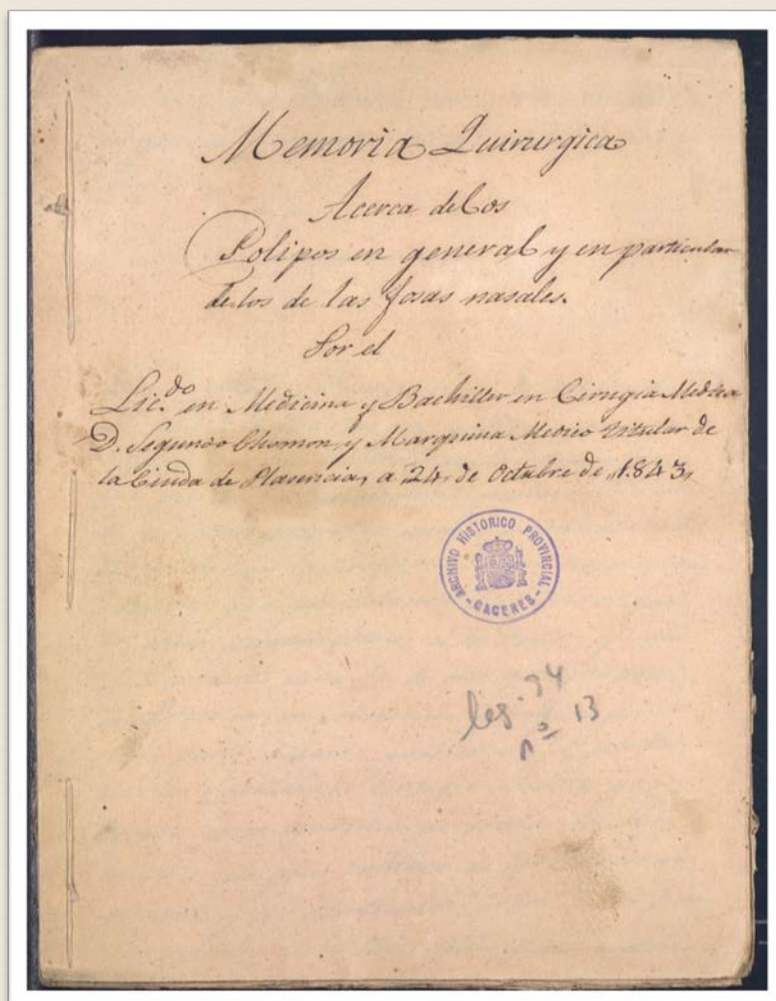 Memoria Quirurgica
Acerca de los
Polipos en general y en particular
de los de las fosas nasales.
Por el
Lic.do en Medicina y Bachiller en Cirugia Medica
D. Segundo Chomon y Marquina Medico titular de
la Ciuda de Plasencia, a 24, de Octubre de, 1843,
ARCHIVO HISTORICO PROVINCIAL
- CACERES -
leg. 94
nº 13